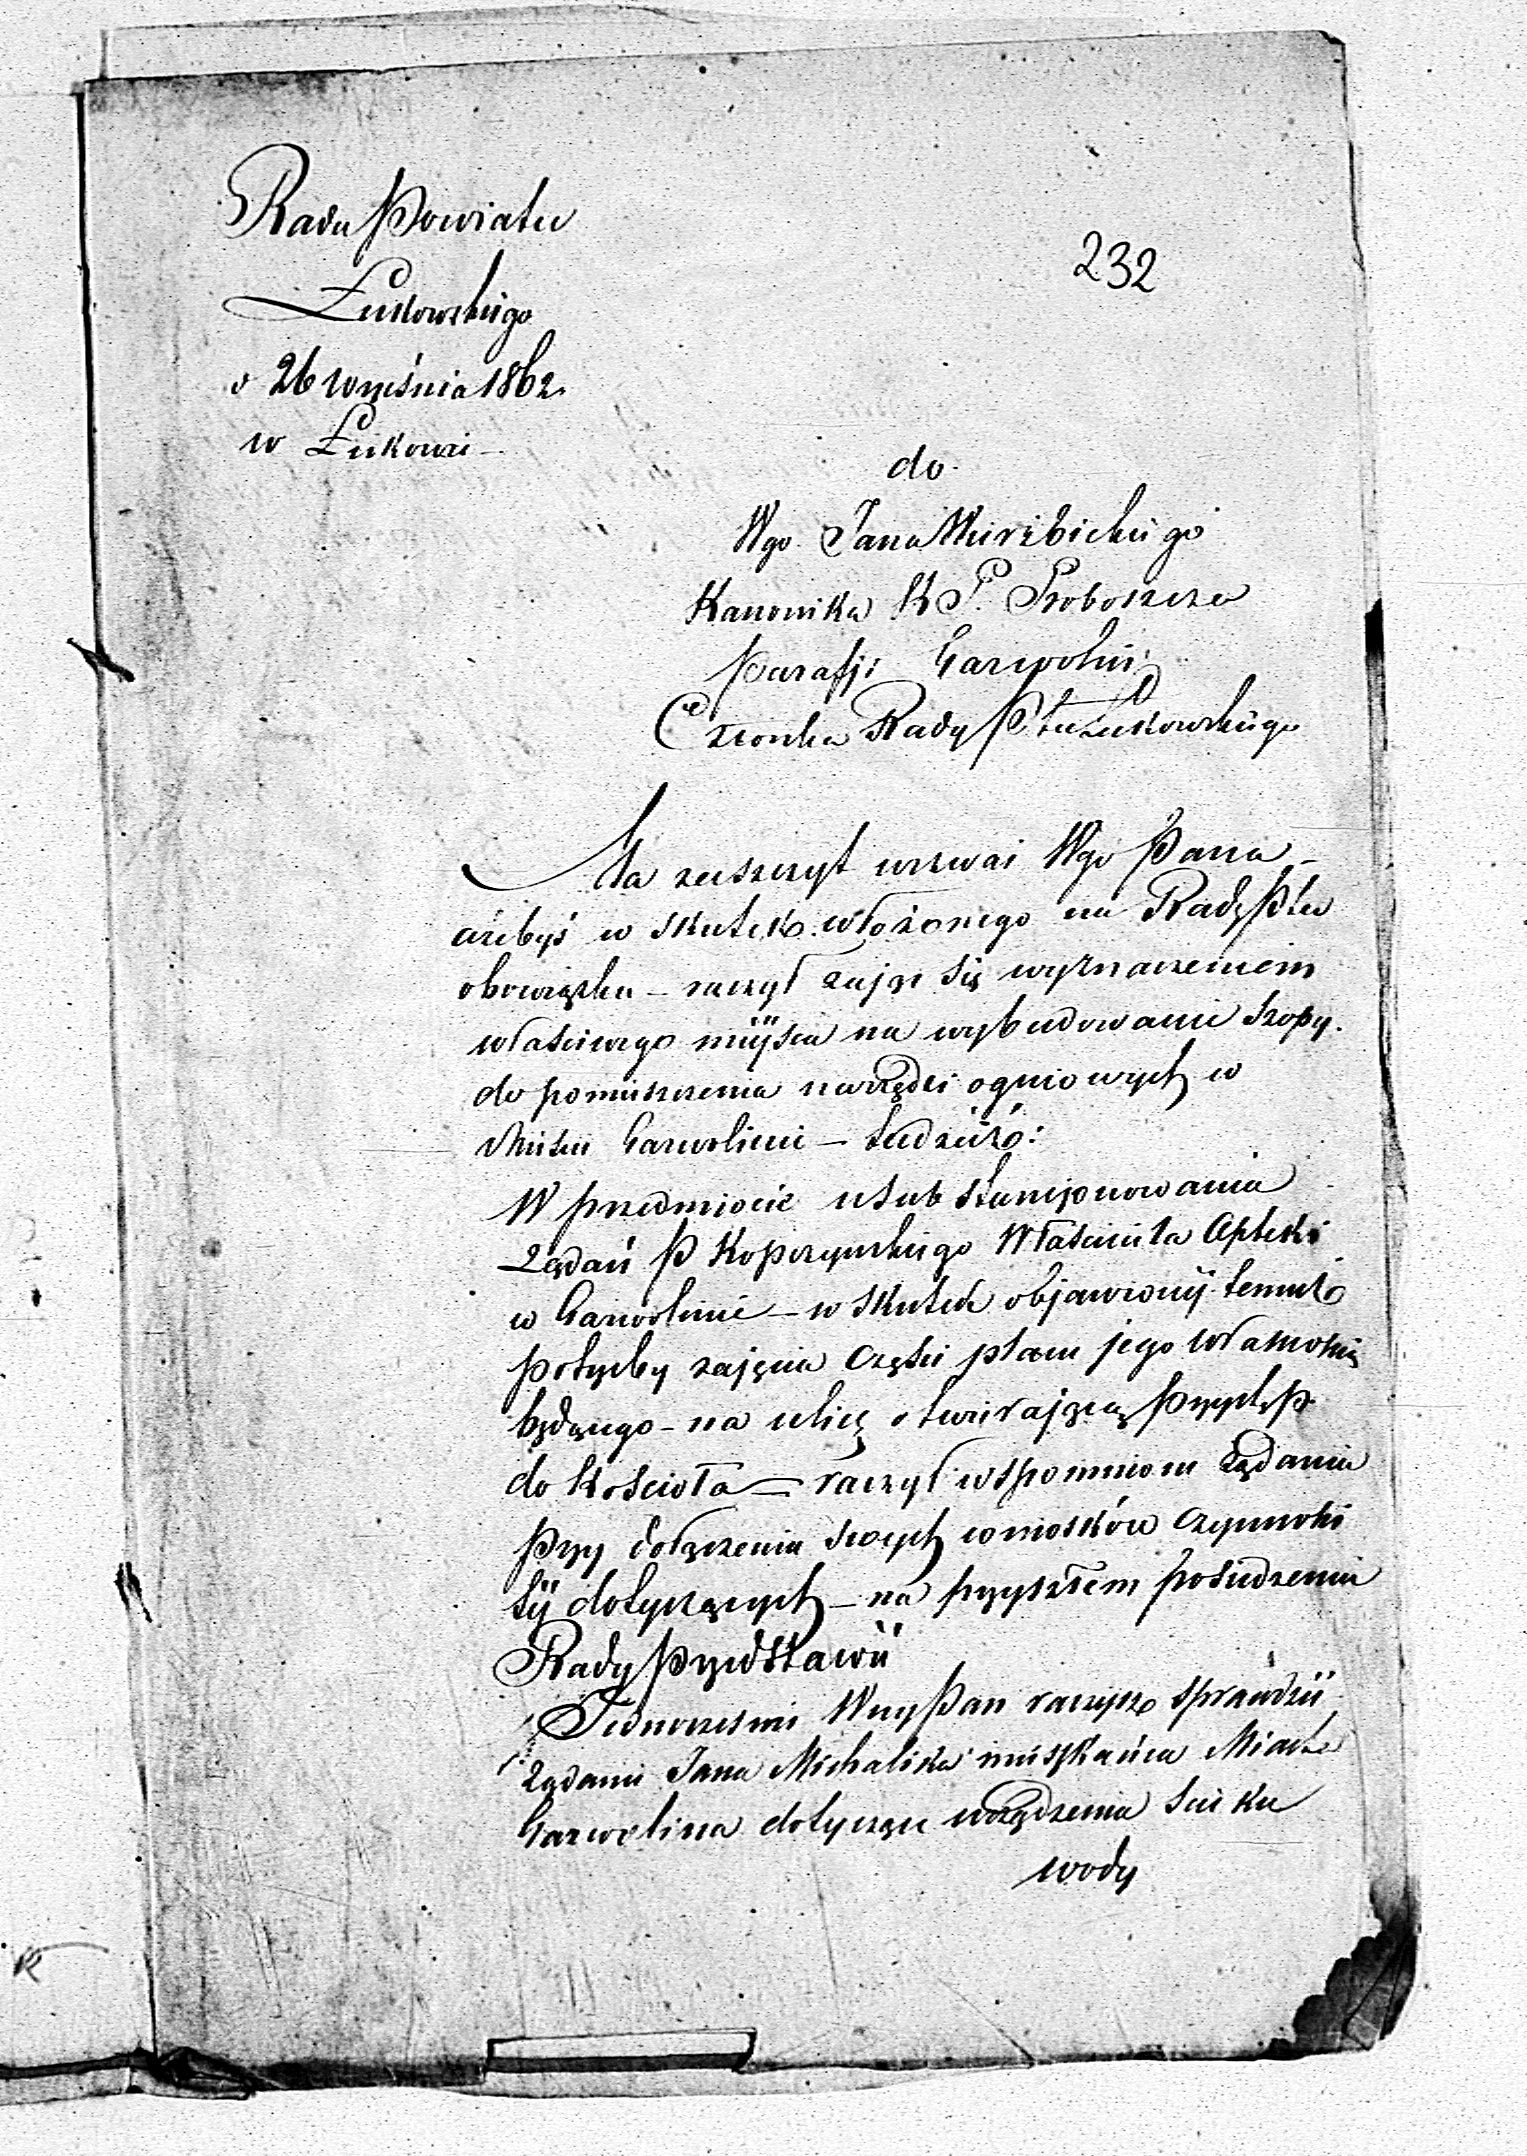 Rada Powiatu
Łukowskiego
d 26 Września 1862.
w Łukowie
232
do
Wgo Jana Wierzbickiego
Kanonika K P. Proboszcza
Parafji Garwolin
Członka Rady Ptu Łukowskiego
Ma zaszczyt wezwać Wgo Pana
ażebyś w skutek włożonego na Radę Ptu
obowiązku – raczył zająć się wyznaczeniem
właściwego miejsca na wybudowanie Szopy
do pomieszczenia narzędzi ogniowych w
Mieście Garwolinie – tudzież:
W przedmiocie
Żądań P Kopczyńskiego Właściciela Apteki
w Garwolinie – w skutek objawionej temuż
potrzeby zajęcia części placu jego własnością
będącego – na ulicę otwierającą Przystęp
do Kościoła – raczył wspomnione żądania
przy dołączeniu swych wniosków czynności
tej dotyczących – na przyszłem posiedzeniu
Rady Przedstawić
Jednocześnie Wny Pan raczysz sprawdzić
żądanie Jana Michalika mieszkańca Miasta
Garwolina dotyczące urządzenia ścieku
wody